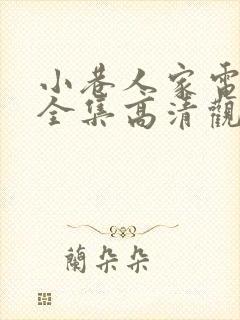 小巷人家電
全集高清觀
蘭朵朵